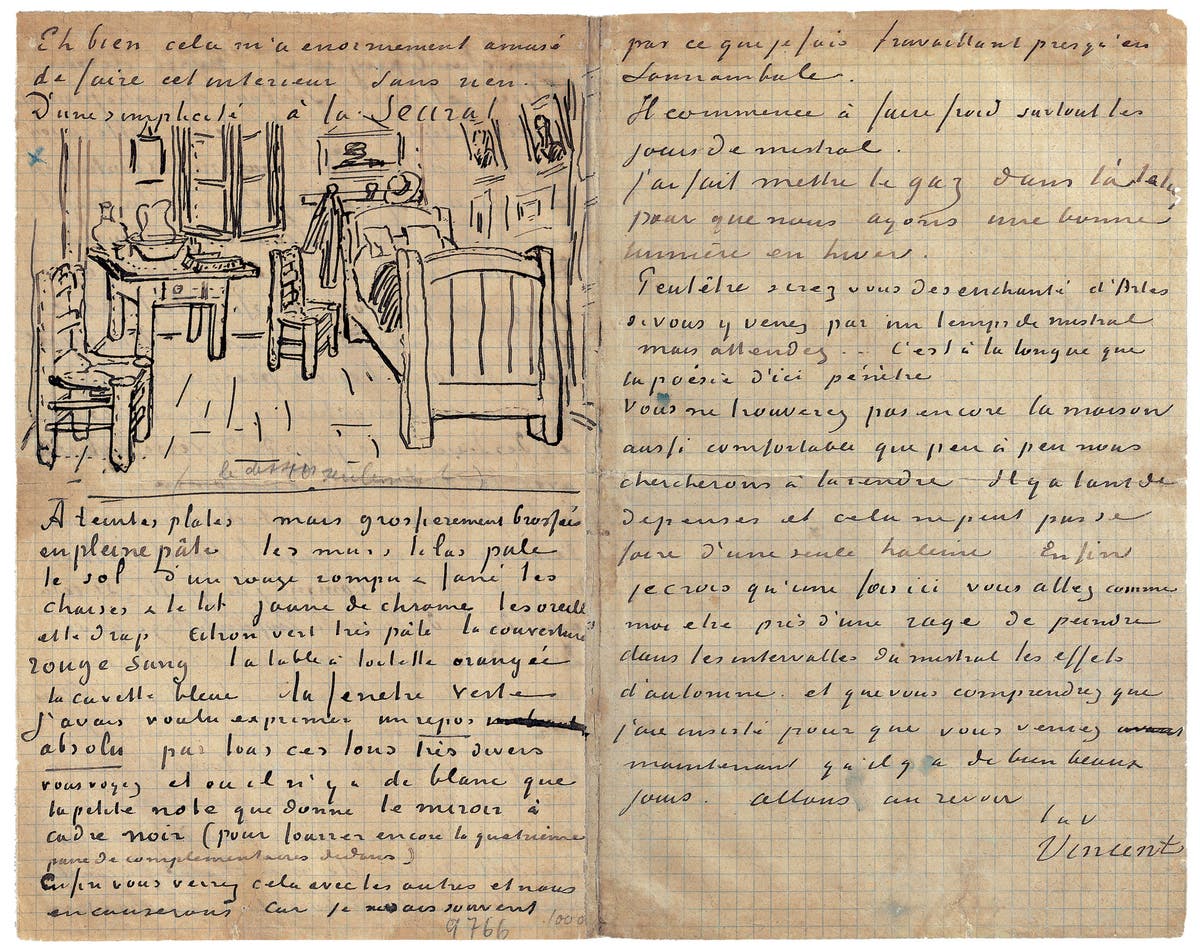 Eh bien cela m'a enormement amusé
de faire cet interieur sans rien.
D'une simplicité à la Seurat
le dessin seulement
À teintes plates mais grossierement brossées
en pleine pâte les murs lilas pale
le sol d'un rouge rompu & fané les
chaises & le lit jaune de chrome les oreill
et le drap citron vert très pâle la couverture
rouge sang la table à toilette orangée
la cuvette bleue la fenetre verte
j'avais voulu exprimer un repos
absolu par tous ces tons très divers
vous voyez et où il n'y a de blanc que
la petite note que donne le miroir à
cadre noir (pour fourrer encore la quatrième
paire de complementaires dedans)
Enfin vous verrez cela avec les autres et nous
en causerons car je ne sais souvent
9766 1000
par ce que je fais travaillant presqu'en
somnambule.
Il commence à faire froid surtout les
jours de mistral.
j'ai fait mettre le gaz dans l'à
pour que nous ayons une bonne
lumière en hiver.
Peutêtre serez vous desenchanté d'Arles
si vous y venez par un temps de mistral
mais attendez .. C'est à la longue que
la poésie d'ici pénètre
Vous ne trouverez pas encore la maison
aussi comfortable que peu à peu nous
chercherons à la rendre Il y a tant de
depenses et cela ne peut pas se
faire d'une seule haleine Enfin
je crois qu'une fois ici vous allez comme
moi etre pris d'une rage de peindre
dans les intervalles du mistral les effets
d'automne. et que vous comprendrez que
j'aie insisté pour que vous veniez
maintenant qu'il y a de bien beaux
jours. allons au revoir
t.à v
Vincent